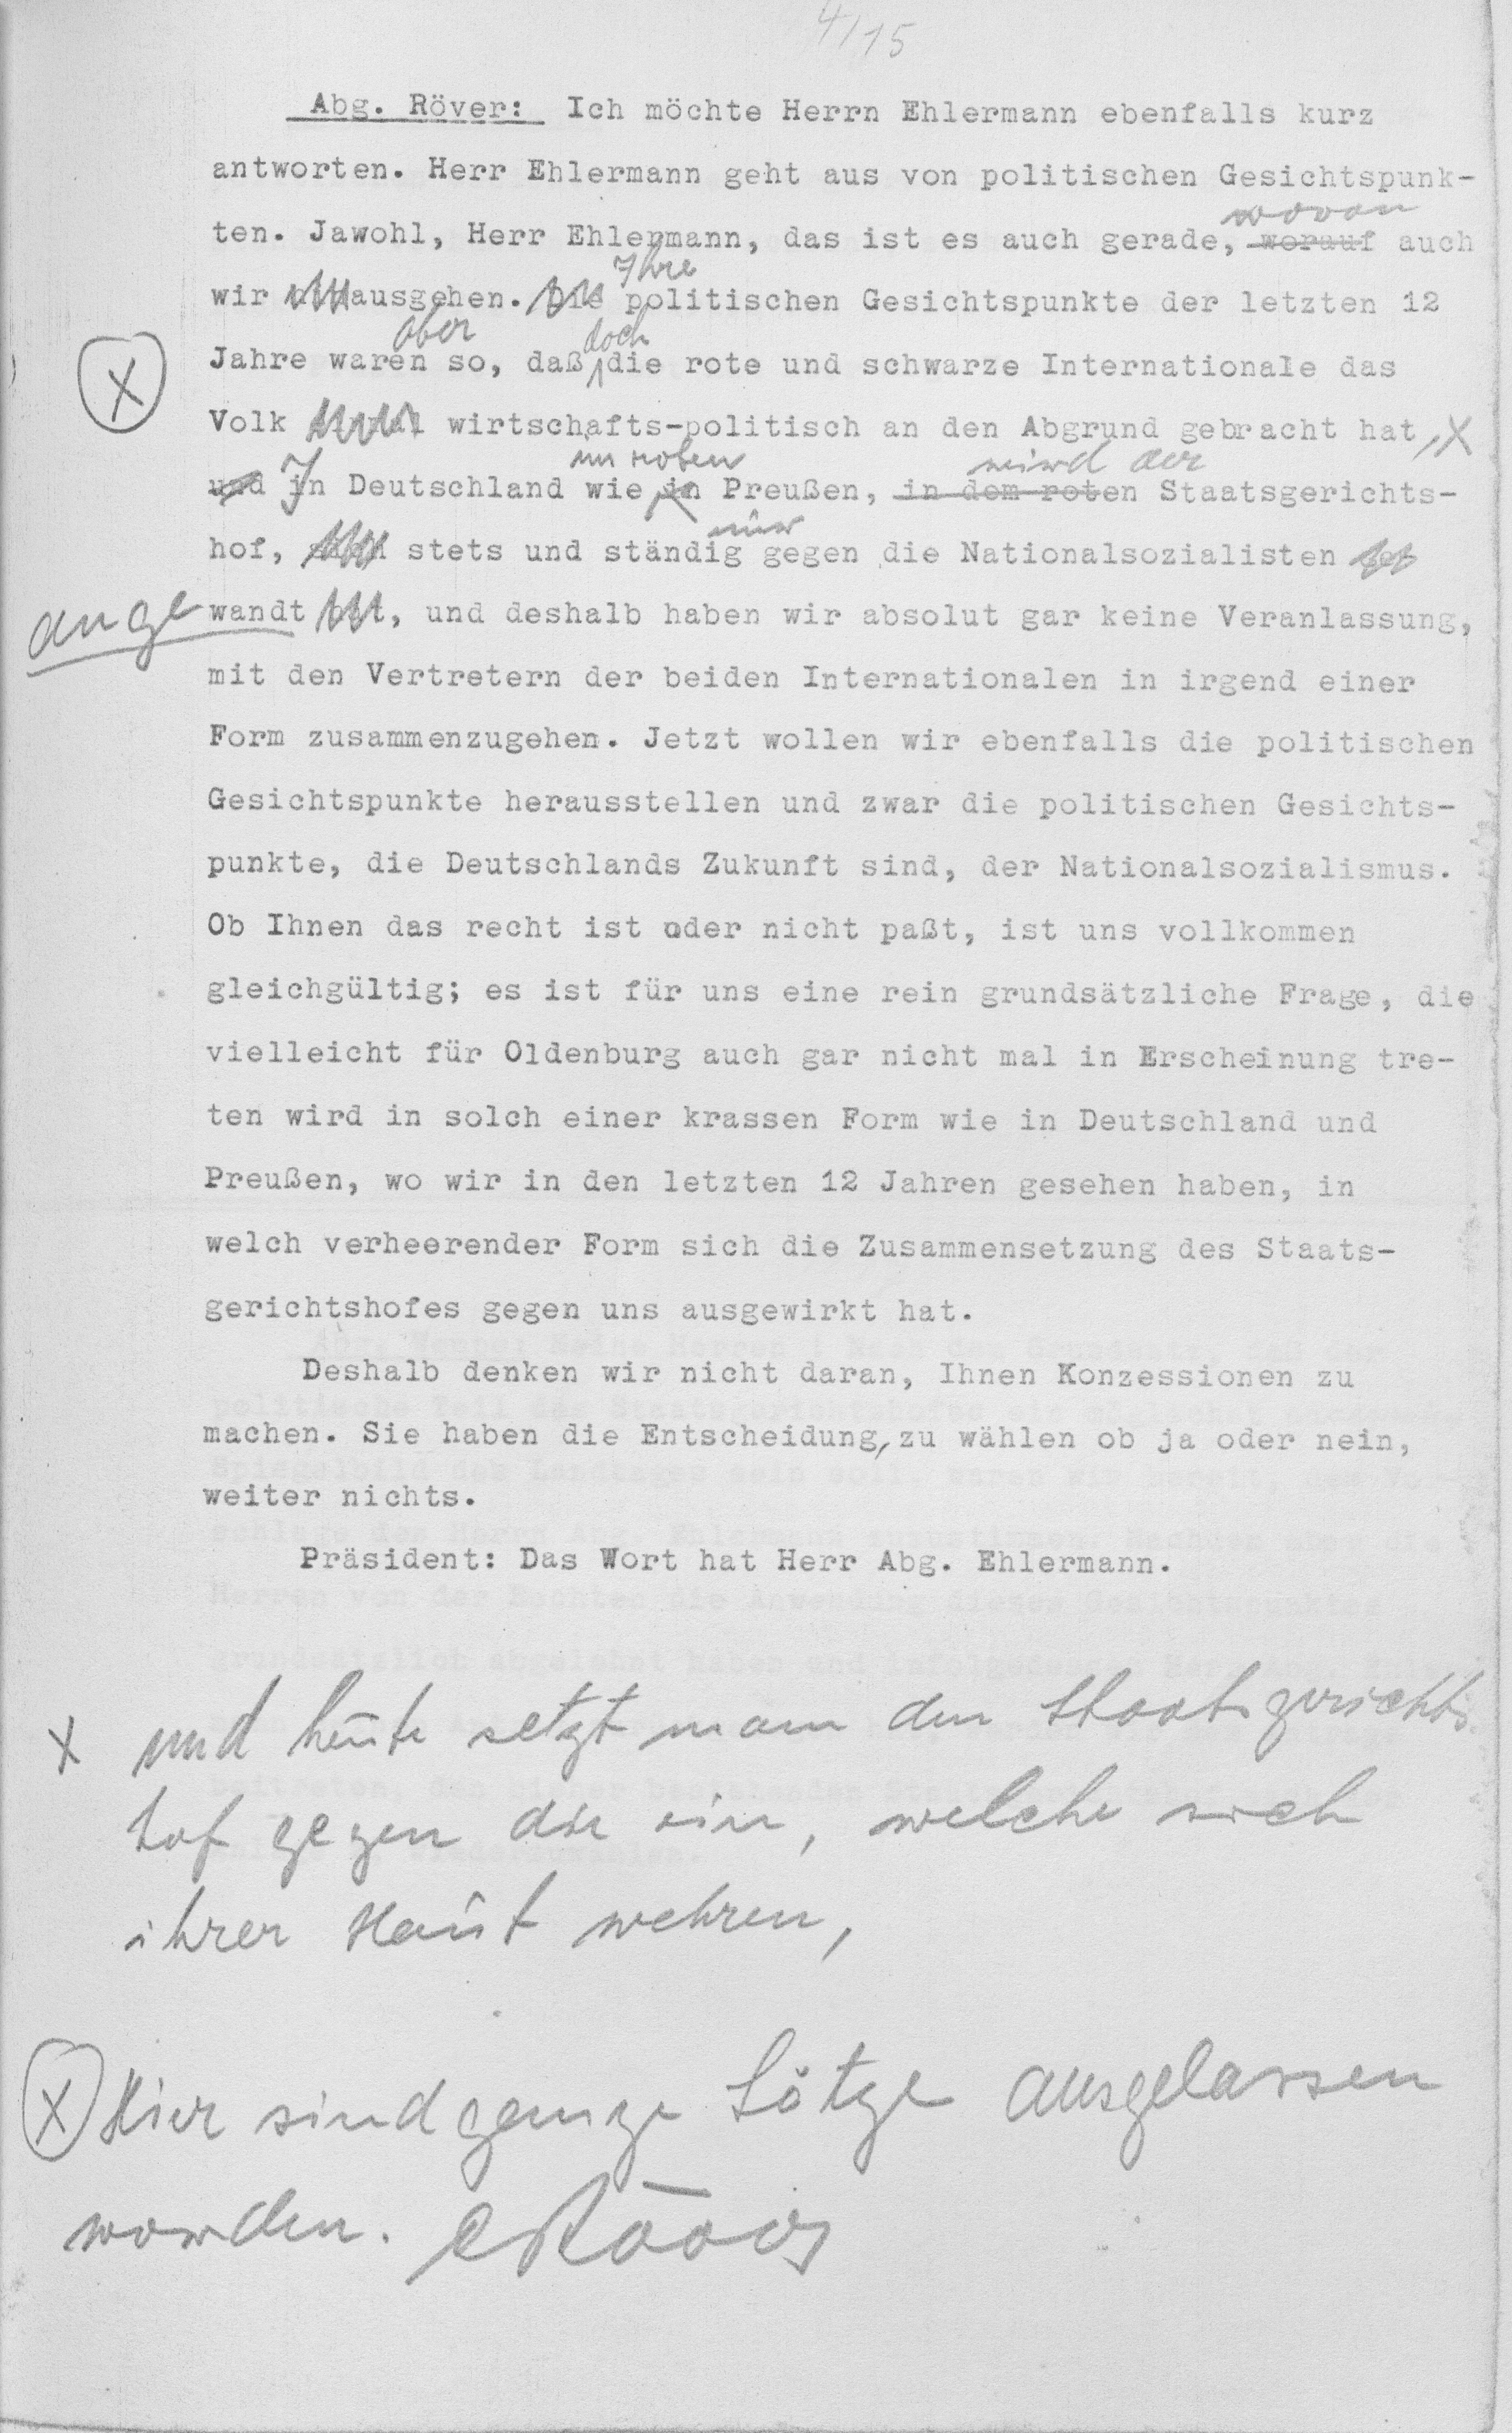 4/15
Abg. Röver: Ich möchte Herrn Ehlermann ebenfalls kurz
antworten. Herr Ehlermann geht aus von politischen Gesichtspunk-
wovon
ten. Jawohl, Herr Ehlermann, das ist es auch gerade, worauf auch
Ihre
wir ausgehen. Die politischen Gesichtspunkte der letzten 12
aber doch
X Jahre waren so, daß die rote und schwarze Internationale das
Volk wirtschafts-politisch an den Abgrund gebracht hat, X
im roten wird der
und In Deutschland wie in Preußen, in dem roten Staatsgerichts-
nur
hof, stets und ständig gegen die Nationalsozialisten
ange wandt, und deshalb haben wir absolut gar keine Veranlassung,
mit den Vertretern der beiden Internationalen in irgend einer
Form zusammenzugehen. Jetzt wollen wir ebenfalls die politischen
Gesichtspunkte herausstellen und zwar die politischen Gesichts-
punkte, die Deutschlands Zukunft sind, der Nationalsozialismus.
Ob Ihnen das recht ist oder nicht paßt, ist uns vollkommen
gleichgültig; es ist für uns eine rein grundsätzliche Frage, die
vielleicht für Oldenburg auch gar nicht mal in Erscheinung tre-
ten wird in solch einer krassen Form wie in Deutschland und
Preußen, wo wir in den letzten 12 Jahren gesehen haben, in
welch verheerender Form sich die Zusammensetzung des Staats-
gerichtshofes gegen uns ausgewirkt hat.
Deshalb denken wir nicht daran, Ihnen Konzessionen zu
machen. Sie haben die Entscheidung, zu wählen ob ja oder nein,
weiter nichts.
Präsident: Das Wort hat Herr Abg. Ehlermann.
X und heute setzt man den Staatsgerichts
hof gegen die ein, welche sich
ihrer Haut wehren,
X Hier sind ganze Sätze ausgelassen
worden. Röver